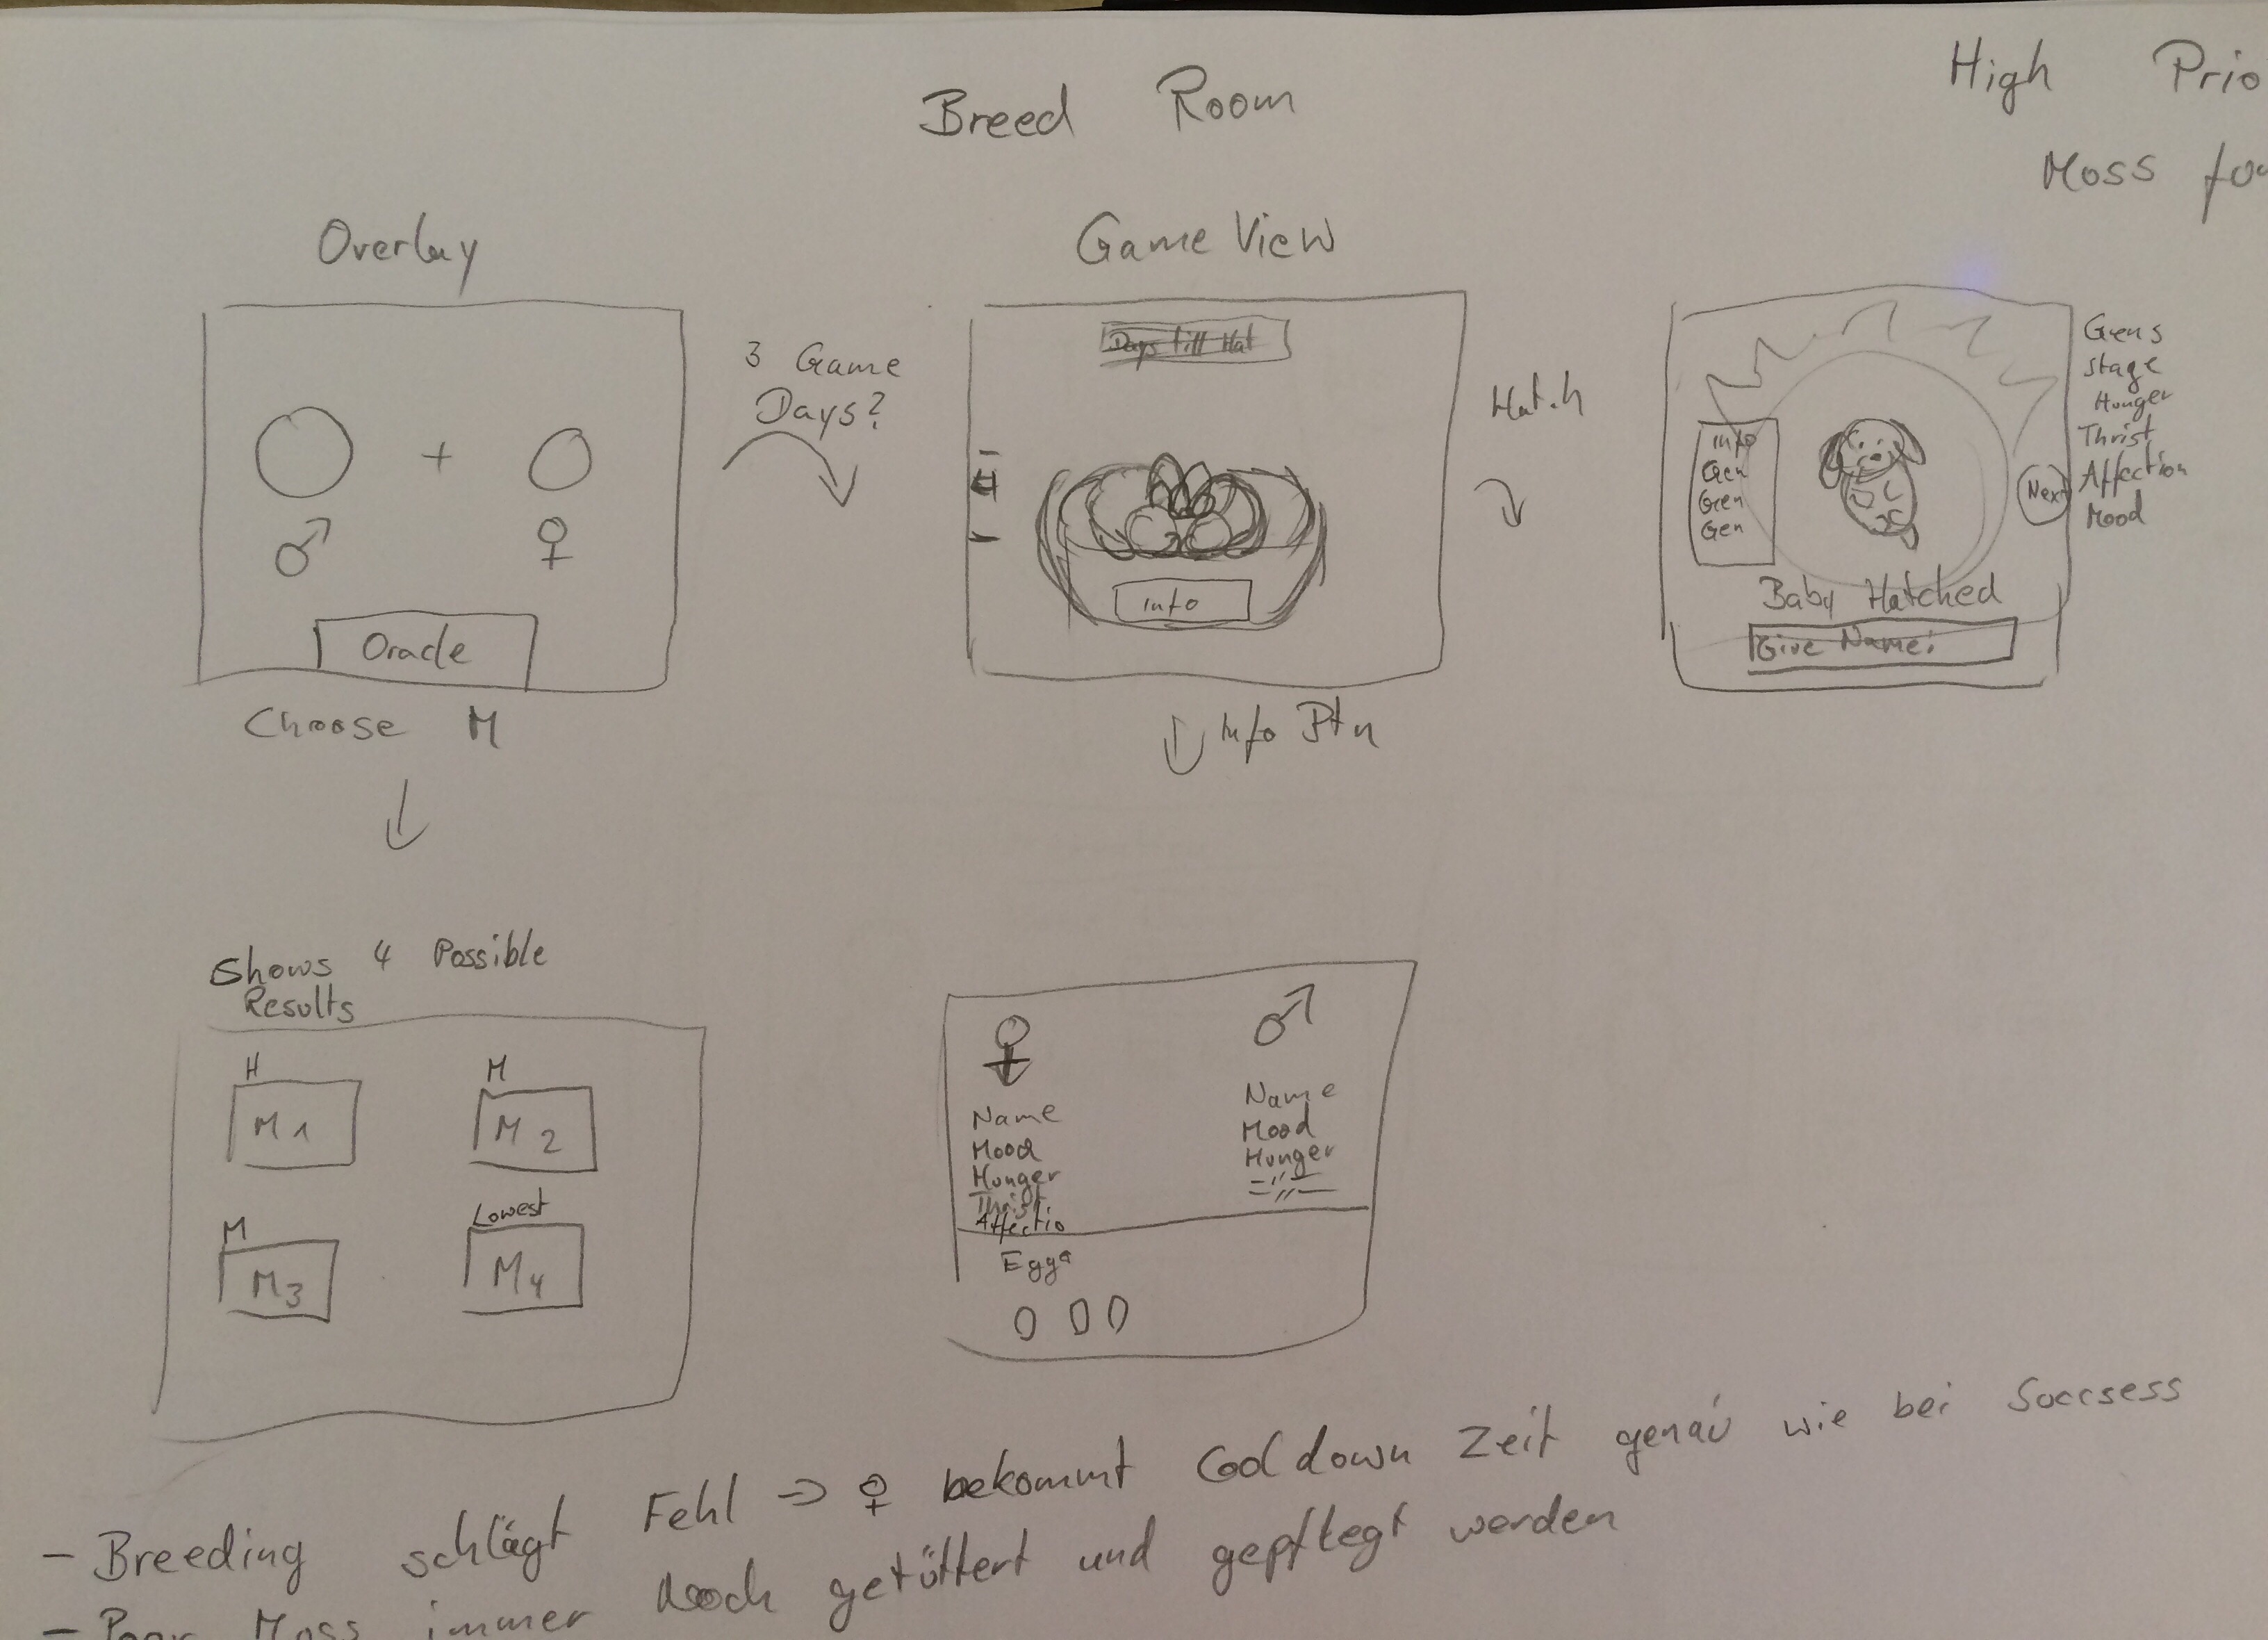 Breed Room
High Prio
Moss
Overlay
♂ + ♀
Oracle
Choose M
3 Game
Days?
Game View
Days till Hat
Info
Info Btn
Hatch
Info
Gen
Gen
Gen
Next
Baby Hatched
Give Name:
Gens
Stage
Hunger
Thrist
Affection
Mood
Shows 4 Possible
Results
H
M1
M
M2
M
M3
Lowest
M4
♀ ♂
Name
Mood
Hunger
Thrist
Affectio
Name
Mood
Hunger
Eggs
- Breeding schlägt Fehl => ♀ bekommt Cooldown Zeit genau wie bei Succsess
- Paar Moss immer Noch gefüttert und gepflegt werden